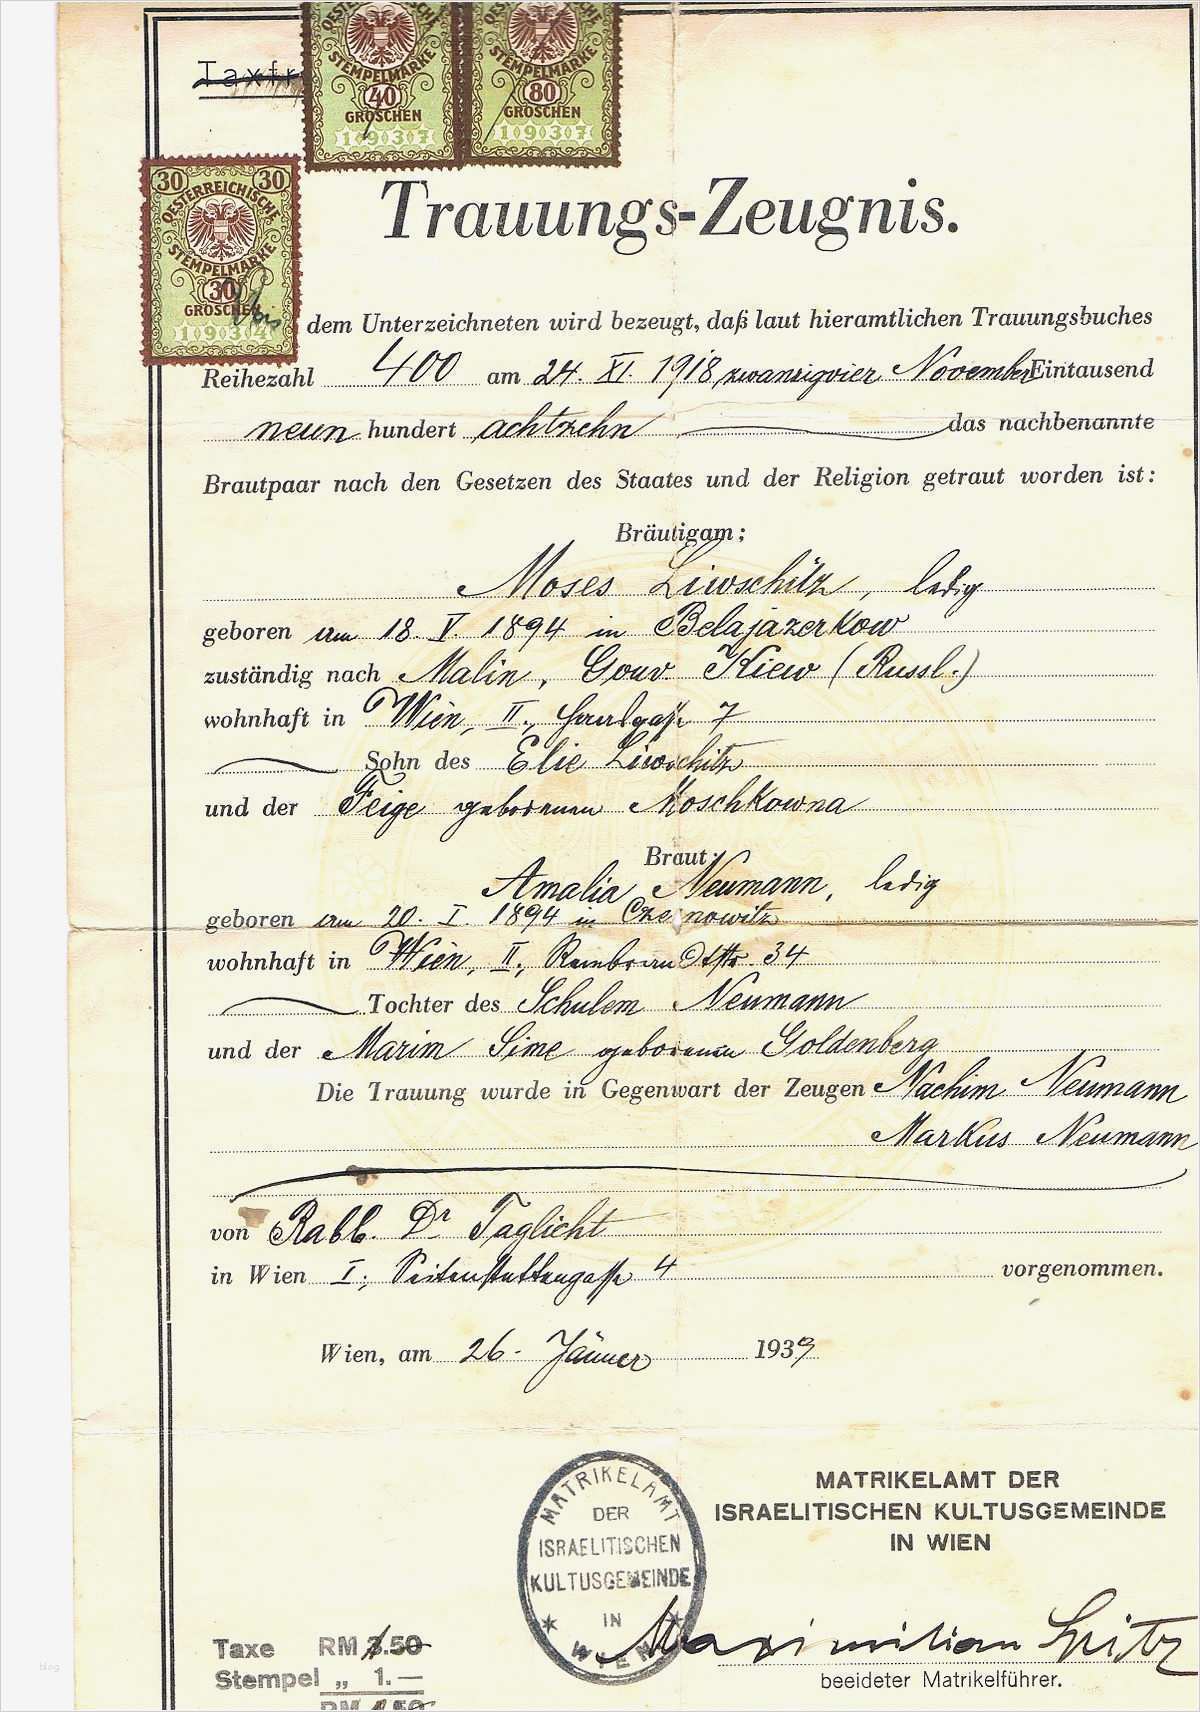 Taxfr
OESTERREICHISCHE
STEMPELMARKE
40
GROSCHEN
1937
STEMPELMARKE
80
GROSCHEN
1937
30 30
OESTERREICHISCHE
STEMPELMARKE
30
GROSCHEN
1934
Trauungs-Zeugnis.
dem Unterzeichneten wird bezeugt, daß laut hieramtlichen Trauungsbuches
Reihezahl 400 am 24. XI. 1918, zwanzigvier November Eintausend
neun hundert achtzehn das nachbenannte
Brautpaar nach den Gesetzen des Staates und der Religion getraut worden ist:
Bräutigam;
Moses Liwschitz, ledig
geboren am 18. V. 1894 in Belajazerkow
zuständig nach Malin, Gouv. Kiew (Russl.)
wohnhaft in Wien, II., 7
Sohn des Elie Liwschitz
und der Feige geborenen Moschkowna
Braut:
Amalia Neumann, ledig
geboren am 20. I. 1894 in Czernowitz
wohnhaft in Wien, II., Rembrandtstr. 34
Tochter des Schulem Neumann
und der Marim Sime geborenen Goldenberg
Die Trauung wurde in Gegenwart der Zeugen Nachim Neumann
Markus Neumann
von Rabb. Dr Taglicht
in Wien I., Seitenstettengasse 4 vorgenommen.
Wien, am 26. Jänner 1939
MATRIKELAMT DER
ISRAELITISCHEN KULTUSGEMEINDE
IN WIEN
MATRIKELAMT
DER
ISRAELITISCHEN
KULTUSGEMEINDE
IN
WIEN
Maximilian
beeideter Matrikelführer.
Taxe RM 3.50
Stempel „ 1.—
RM
blog